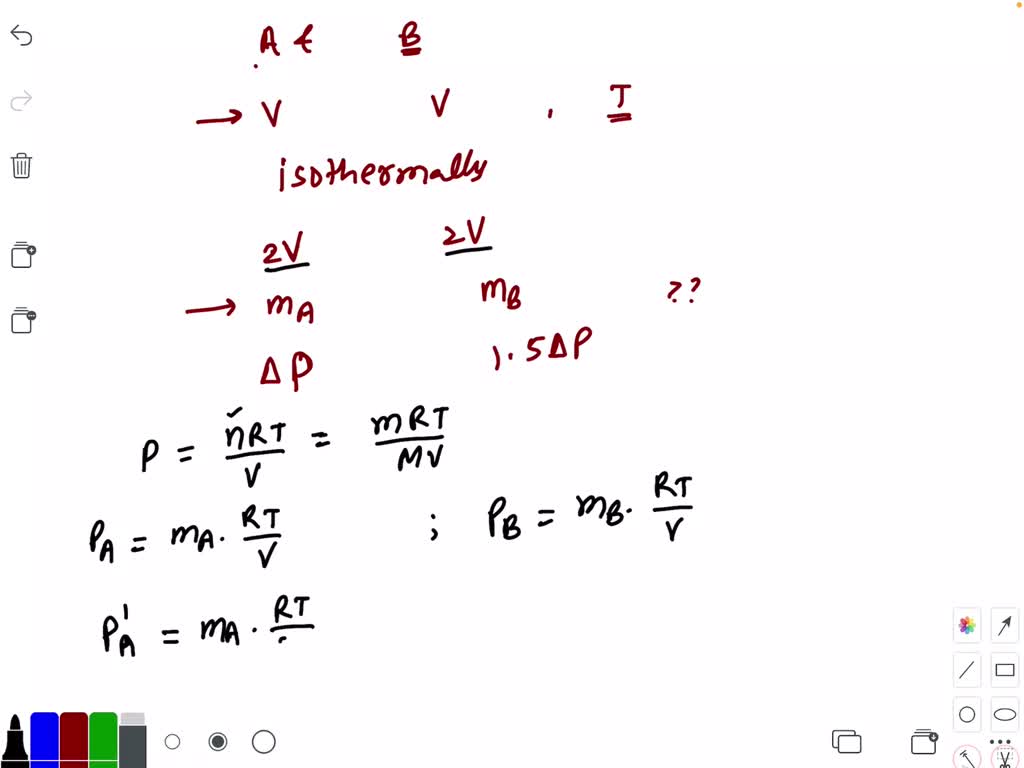 A & B
→ V V , T
isothermally
2V 2V
→ mA mB ??
ΔP 1.5ΔP
P = nRT/V = mRT/MV
PA = mA · RT/V ; PB = mB · RT/V
P'A = mA · RT